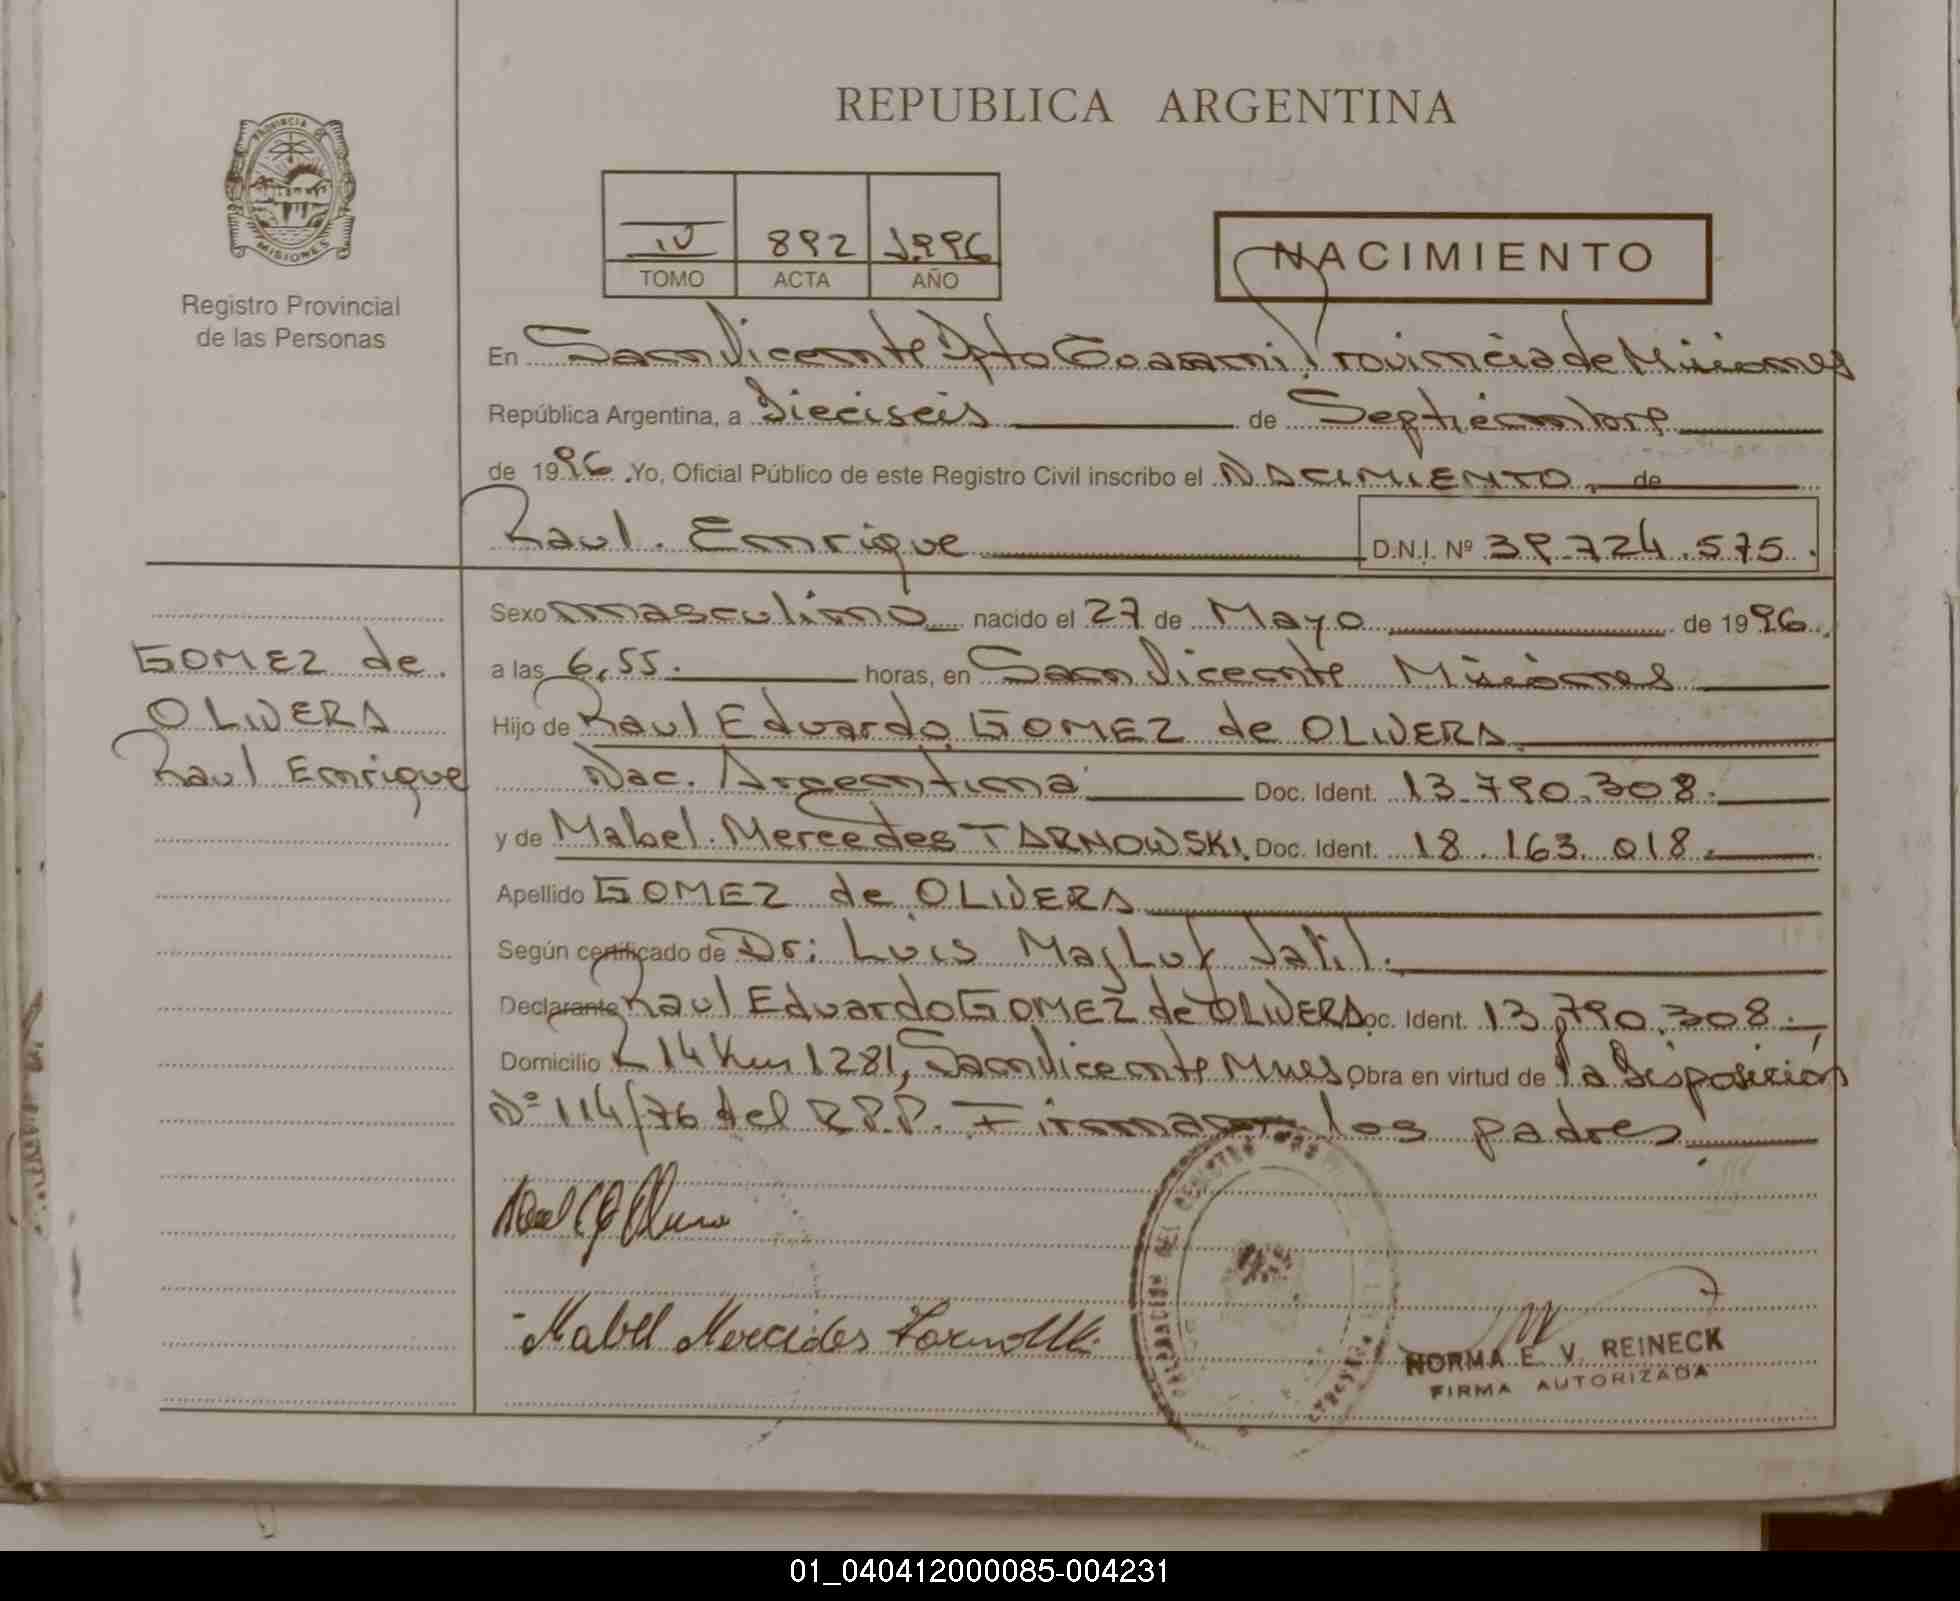 REPUBLICA ARGENTINA
PROVINCIA DE
MISIONES
Registro Provincial
de las Personas
IV 892 1996
TOMO ACTA AÑO
NACIMIENTO
En San Vicente Dpto Guarani Provincia de Misiones
República Argentina, a Dieciseis de Septiembre
de 1996 .Yo, Oficial Público de este Registro Civil inscribo el NACIMIENTO de
Raul Enrique D.N.I. Nº 39.724.575.
Sexo masculino nacido el 27 de Mayo de 1996.
a las 6,55. horas, en San Vicente Misiones
Hijo de Raul Eduardo GOMEZ de OLIVERA
Nac. Argentina Doc. Ident. 13.790.308.
y de Mabel Mercedes TARNOWSKI. Doc. Ident. 18.163.018.
Apellido GOMEZ de OLIVERA
Según certificado de Dr: Luis Jalil.
Declarante Raul Eduardo GOMEZ de OLIVERA Doc. Ident. 13,790.308.
Domicilio R 14 Km 1281, San Vicente Mnes Obra en virtud de la Disposición
Nº 114/76 del R.P.P. Firman los padres
GOMEZ de
OLIVERA
Raul Enrique
Mabel Mercedes
DEL REGISTRO
NORMA E. V. REINECK
FIRMA AUTORIZADA
01_040412000085-004231